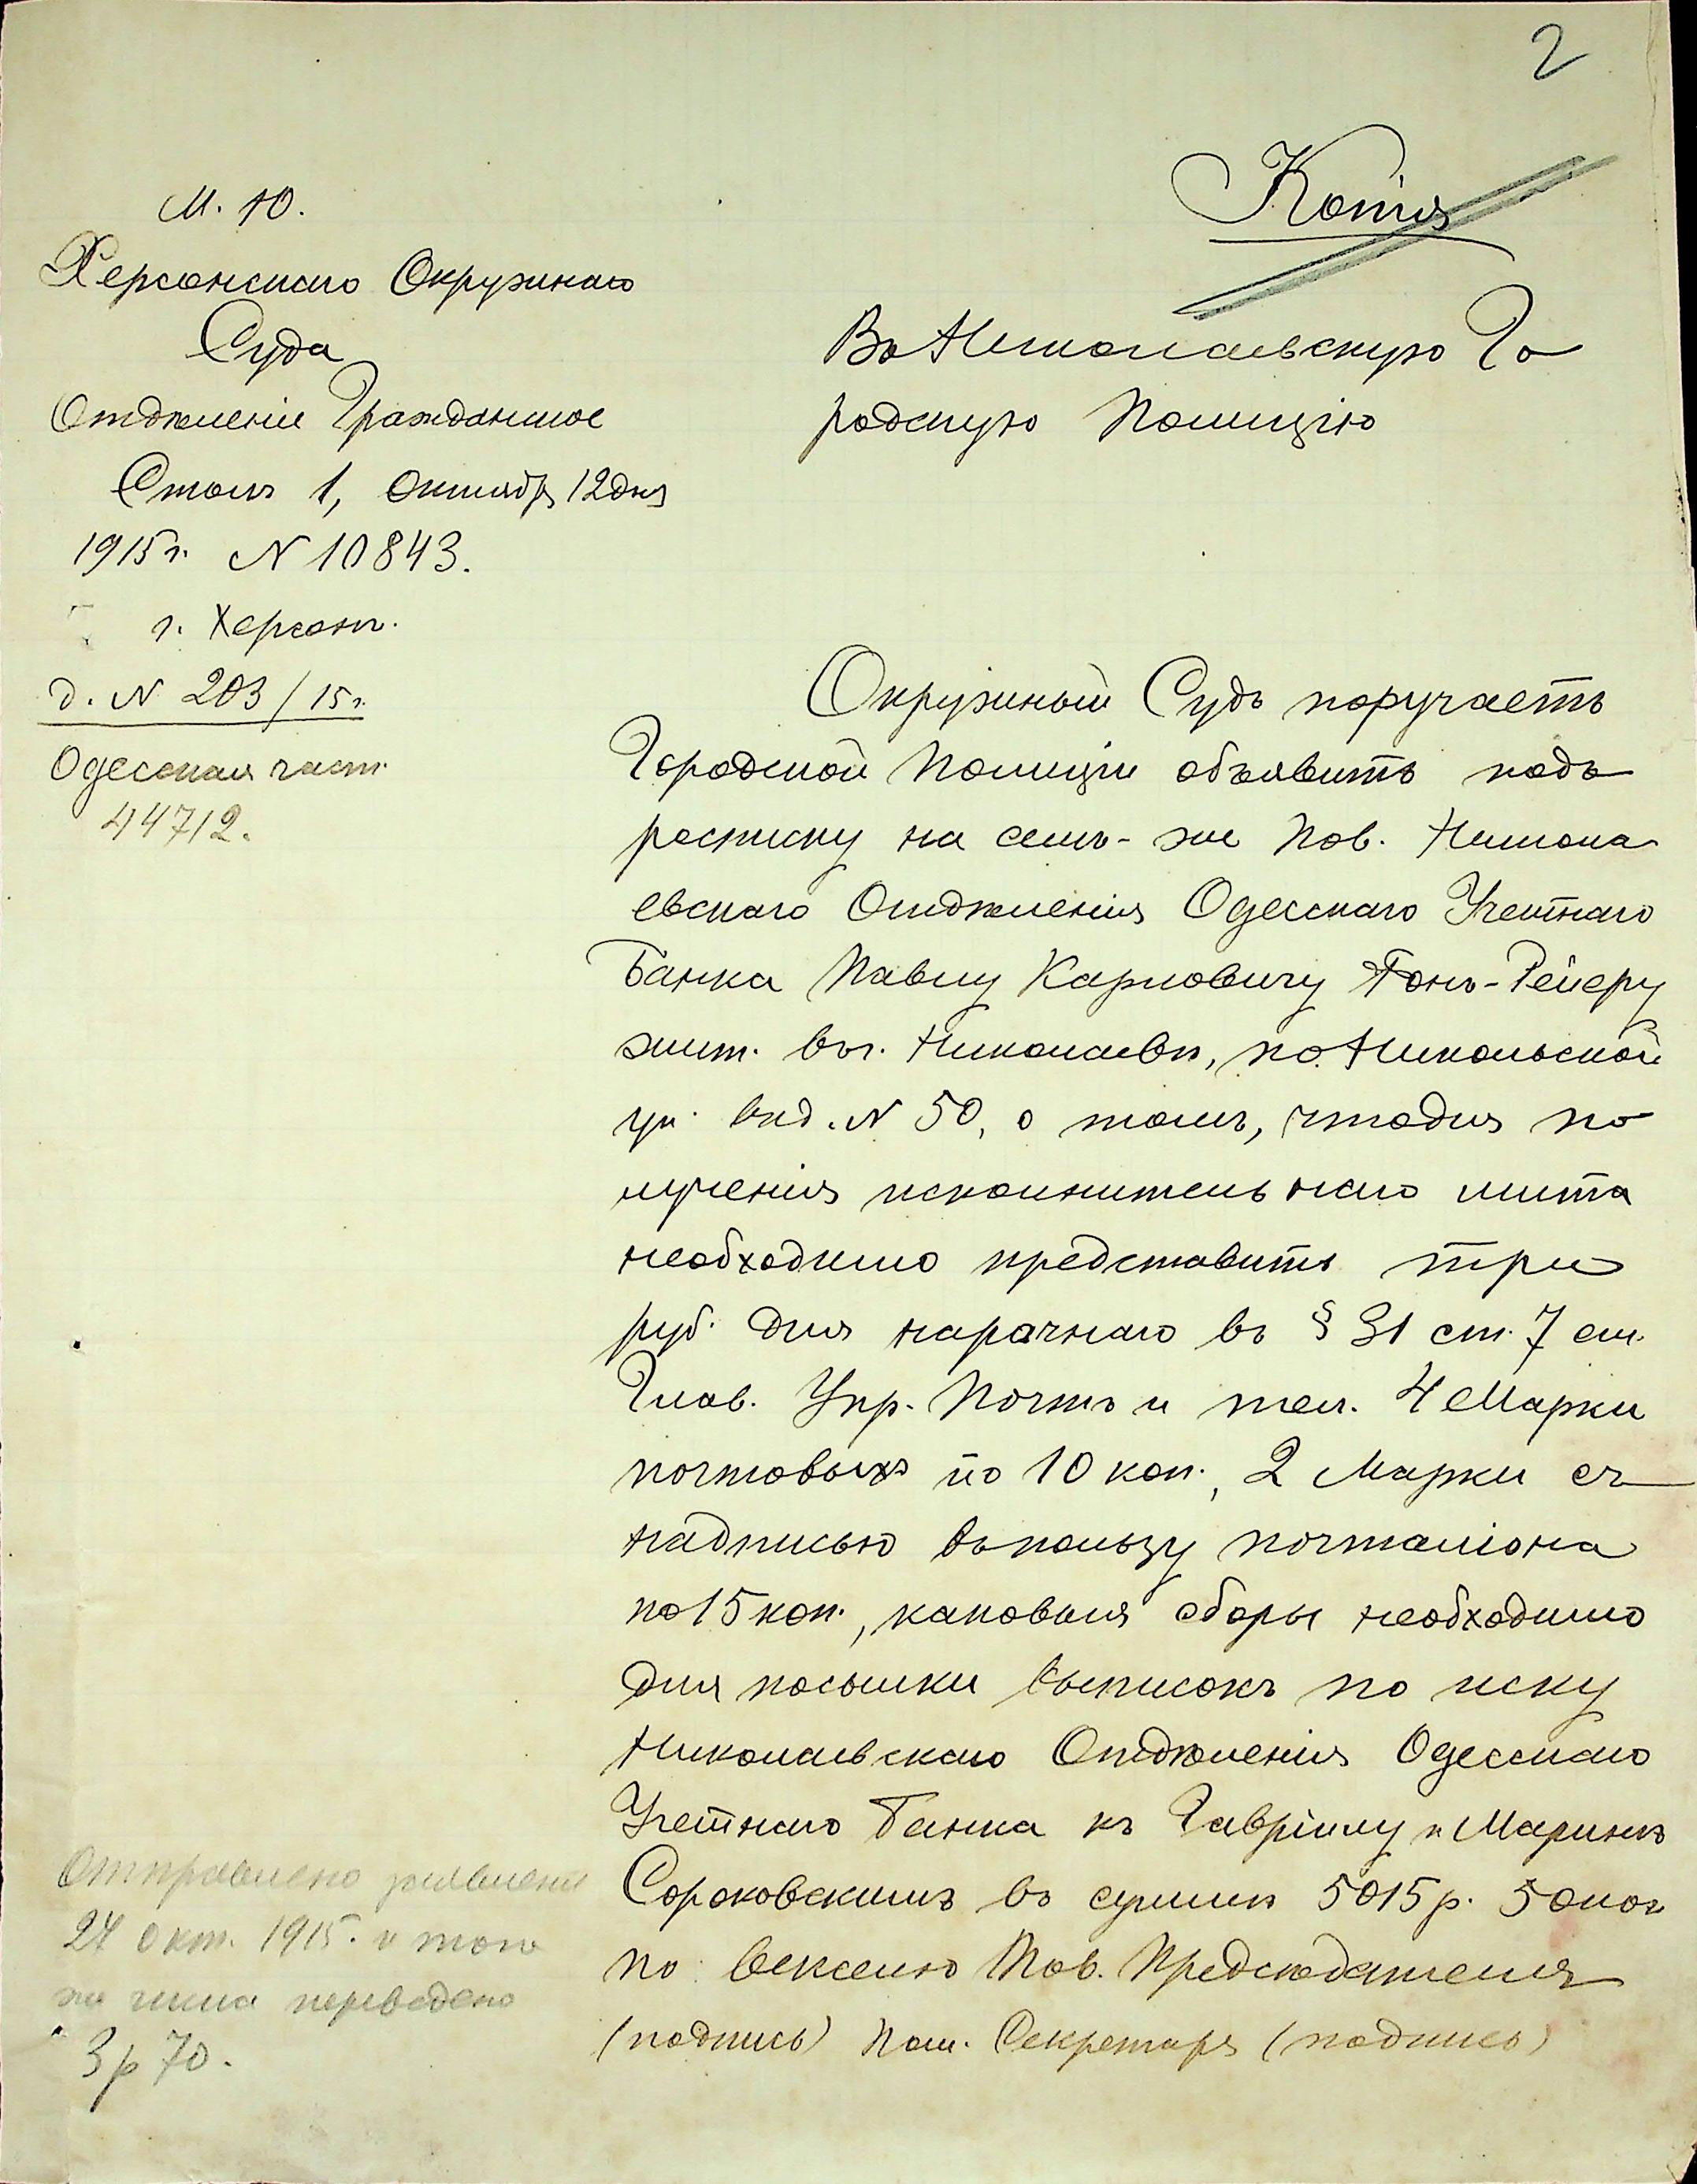 2
Копія
М. Ю.
Херсонскаго Окружнаго
Суда
Отдѣленіе Гражданское
Столъ 1, Октября 12 дня
1915 г. N 10843.
г. Херсонъ.
д. N 203/15 г.
Одесская част.
44712.
Въ Николаевскую Го
родскую Полицію
Окружный Судъ поручаетъ
Городской Полиціи объявить подъ
росписку на семъ-же Пов. Никола
евскаго Отдѣленія Одесскаго Учетнаго
Банка Павлу Карловичу Фонъ-Рейеру
жит. въ г. Николаевѣ, по Никольской
ул. въ д. N 50, о томъ, что для по
лученія исполнительнаго листа
необходимо представить три
руб. для нарочнаго въ § 31 ст. 7 см.
Глав. Упр. Почтъ и тел. 4 Марки
почтовыхъ по 10 коп., 2 Марки съ
надписью въ пользу почталіона
по 15 коп., каковыя сборы необходимо
для посылки выписокъ по иску
Николаевскаго Отдѣленія Одесскаго
Учетнаго Банка къ Гавріилу и Маринѣ
Сороковскимъ въ суммѣ 5015 р. 50 коп
по векселю Тов. Предсѣдателя
(подпись) Пом. Секретаря (подпись)
Отправлено заявленіе
24 окт. 1915. и того
же числа переведено
3 р 70.